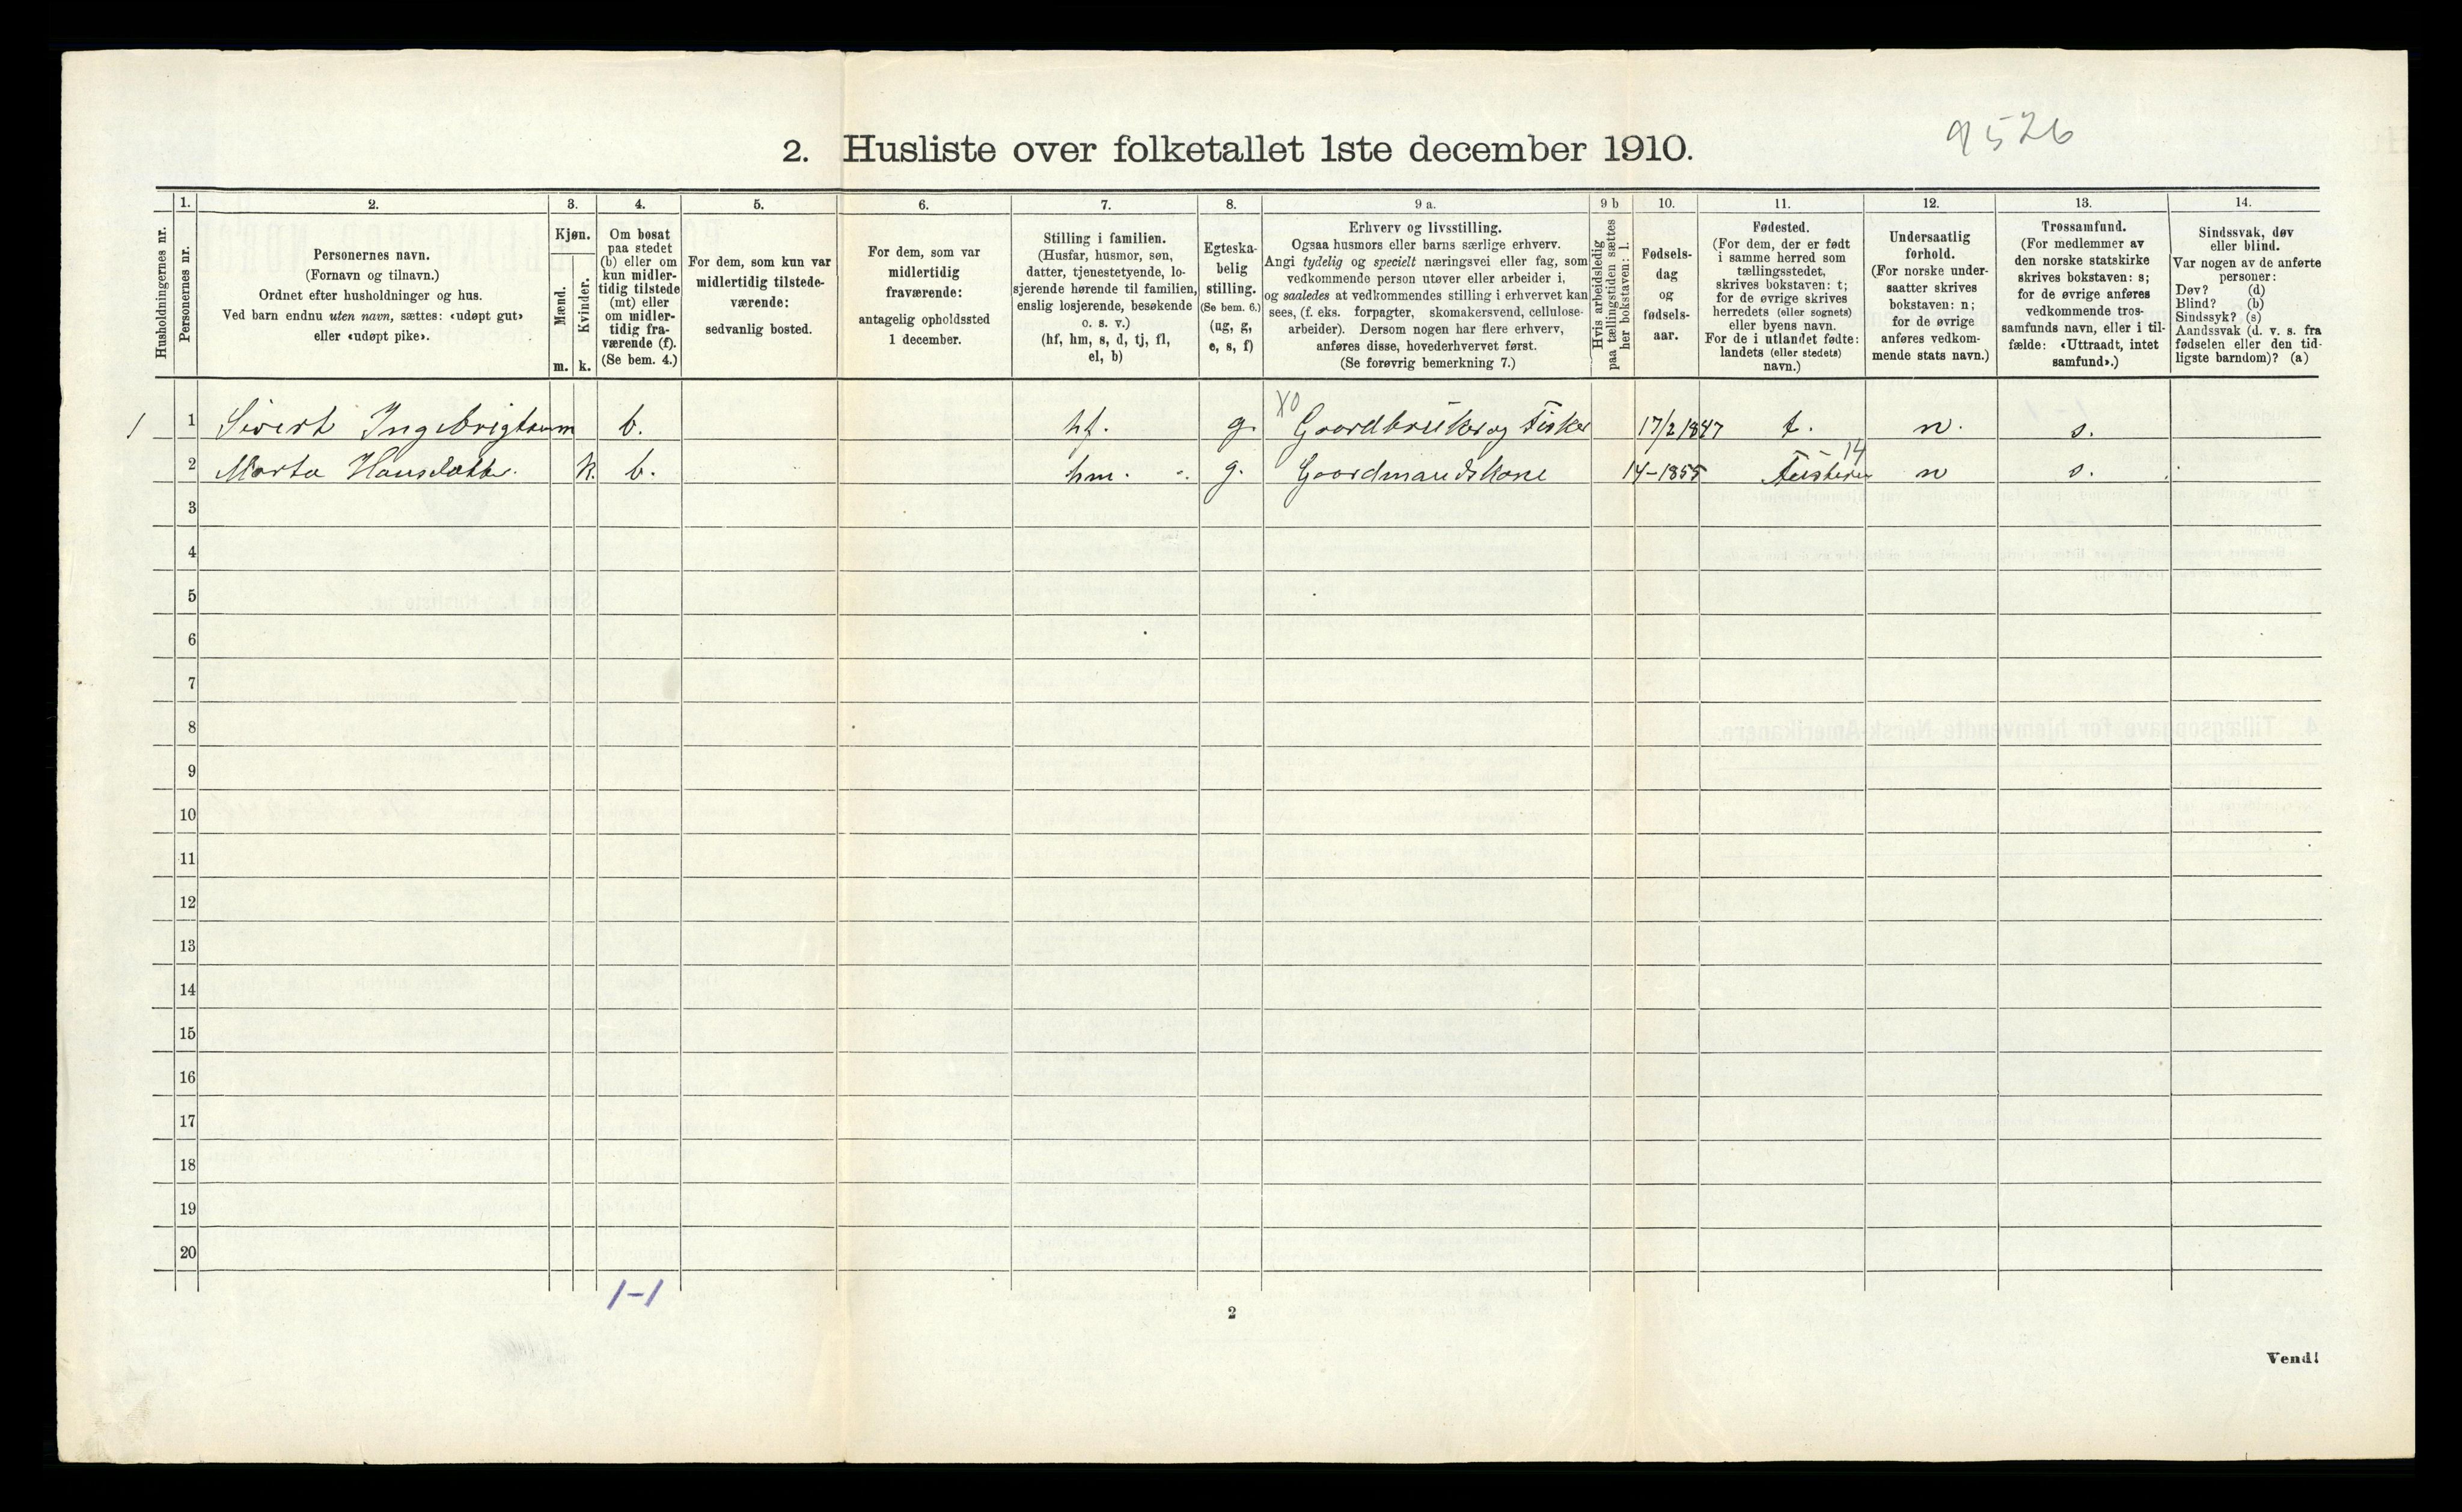 9526
2. Husliste over folketallet 1ste december 1910.
1. 2. 3. 4. 5. 6. 7. 8. 9 a. 9 b 10. 11. 12. 13. 14.
Husholdningernes nr.
Personernes nr.
Personernes navn.
(Fornavn og tilnavn.)
Ordnet efter husholdninger og hus.
Ved barn endnu uten navn, sættes: «udøpt gut»
eller «udøpt pike».
Kjøn.
Mænd.
Kvinder.
m. k.
Om bosat
paa stedet
(b) eller om
kun midler-
tidig tilstede
(mt) eller
om midler-
tidig fra-
værende (f).
(Se bem. 4.)
For dem, som kun var
midlertidig tilstede-
værende:
sedvanlig bosted.
For dem, som var
midlertidig
fraværende:
antagelig opholdssted
1 december.
Stilling i familien.
(Husfar, husmor, søn,
datter, tjenestetyende, lo-
sjerende hørende til familien,
enslig losjerende, besøkende
o. s. v.)
(hf, hm, s, d, tj, fl,
el, b)
Egteska-
belig
stilling.
(Se bem. 6.)
(ug, g,
e, s, f)
Erhverv og livsstilling.
Ogsaa husmors eller barns særlige erhverv.
Angi tydelig og specielt næringsvei eller fag, som
vedkommende person utøver eller arbeider i,
og saaledes at vedkommendes stilling i erhvervet kan
sees, (f. eks. forpagter, skomakersvend, cellulose-
arbeider). Dersom nogen har flere erhverv,
anføres disse, hovederhvervet først.
(Se forøvrig bemerkning 7.)
Hvis arbeidsledig
paa tællingstiden sættes
her bokstaven: l.
Fødsels-
dag
og
fødsels-
aar.
Fødested.
(For dem, der er født
i samme herred som
tællingsstedet,
skrives bokstaven: t;
for de øvrige skrives
herredets (eller sognets)
eller byens navn.
For de i utlandet fødte:
landets (eller stedets)
navn.)
Undersaatlig
forhold.
(For norske under-
saatter skrives
bokstaven: n;
for de øvrige
anføres vedkom-
mende stats navn.)
Trossamfund.
(For medlemmer av
den norske statskirke
skrives bokstaven: s;
for de øvrige anføres
vedkommende tros-
samfunds navn, eller i til-
fælde: «Uttraadt, intet
samfund».)
Sindssvak, døv
eller blind.
Var nogen av de anførte
personer:
Døv? (d)
Blind? (b)
Sindssyk? (s)
Aandssvak (d. v. s. fra
fødselen eller den tid-
ligste barndom)? (a)
X0
1 1 Sivert Ingebrigtsen m b. hf. g. Gaardbruker og Fisker 17/2 1847 t. n. s.
14
2 Marta Hansdatter. k. b. hm. g. Gaardmandskone 14-1855 n s.
3
4
5
6
7
8
9
10
11
12
13
14
15
16
17
18
19
20
1-1
2
Vend!